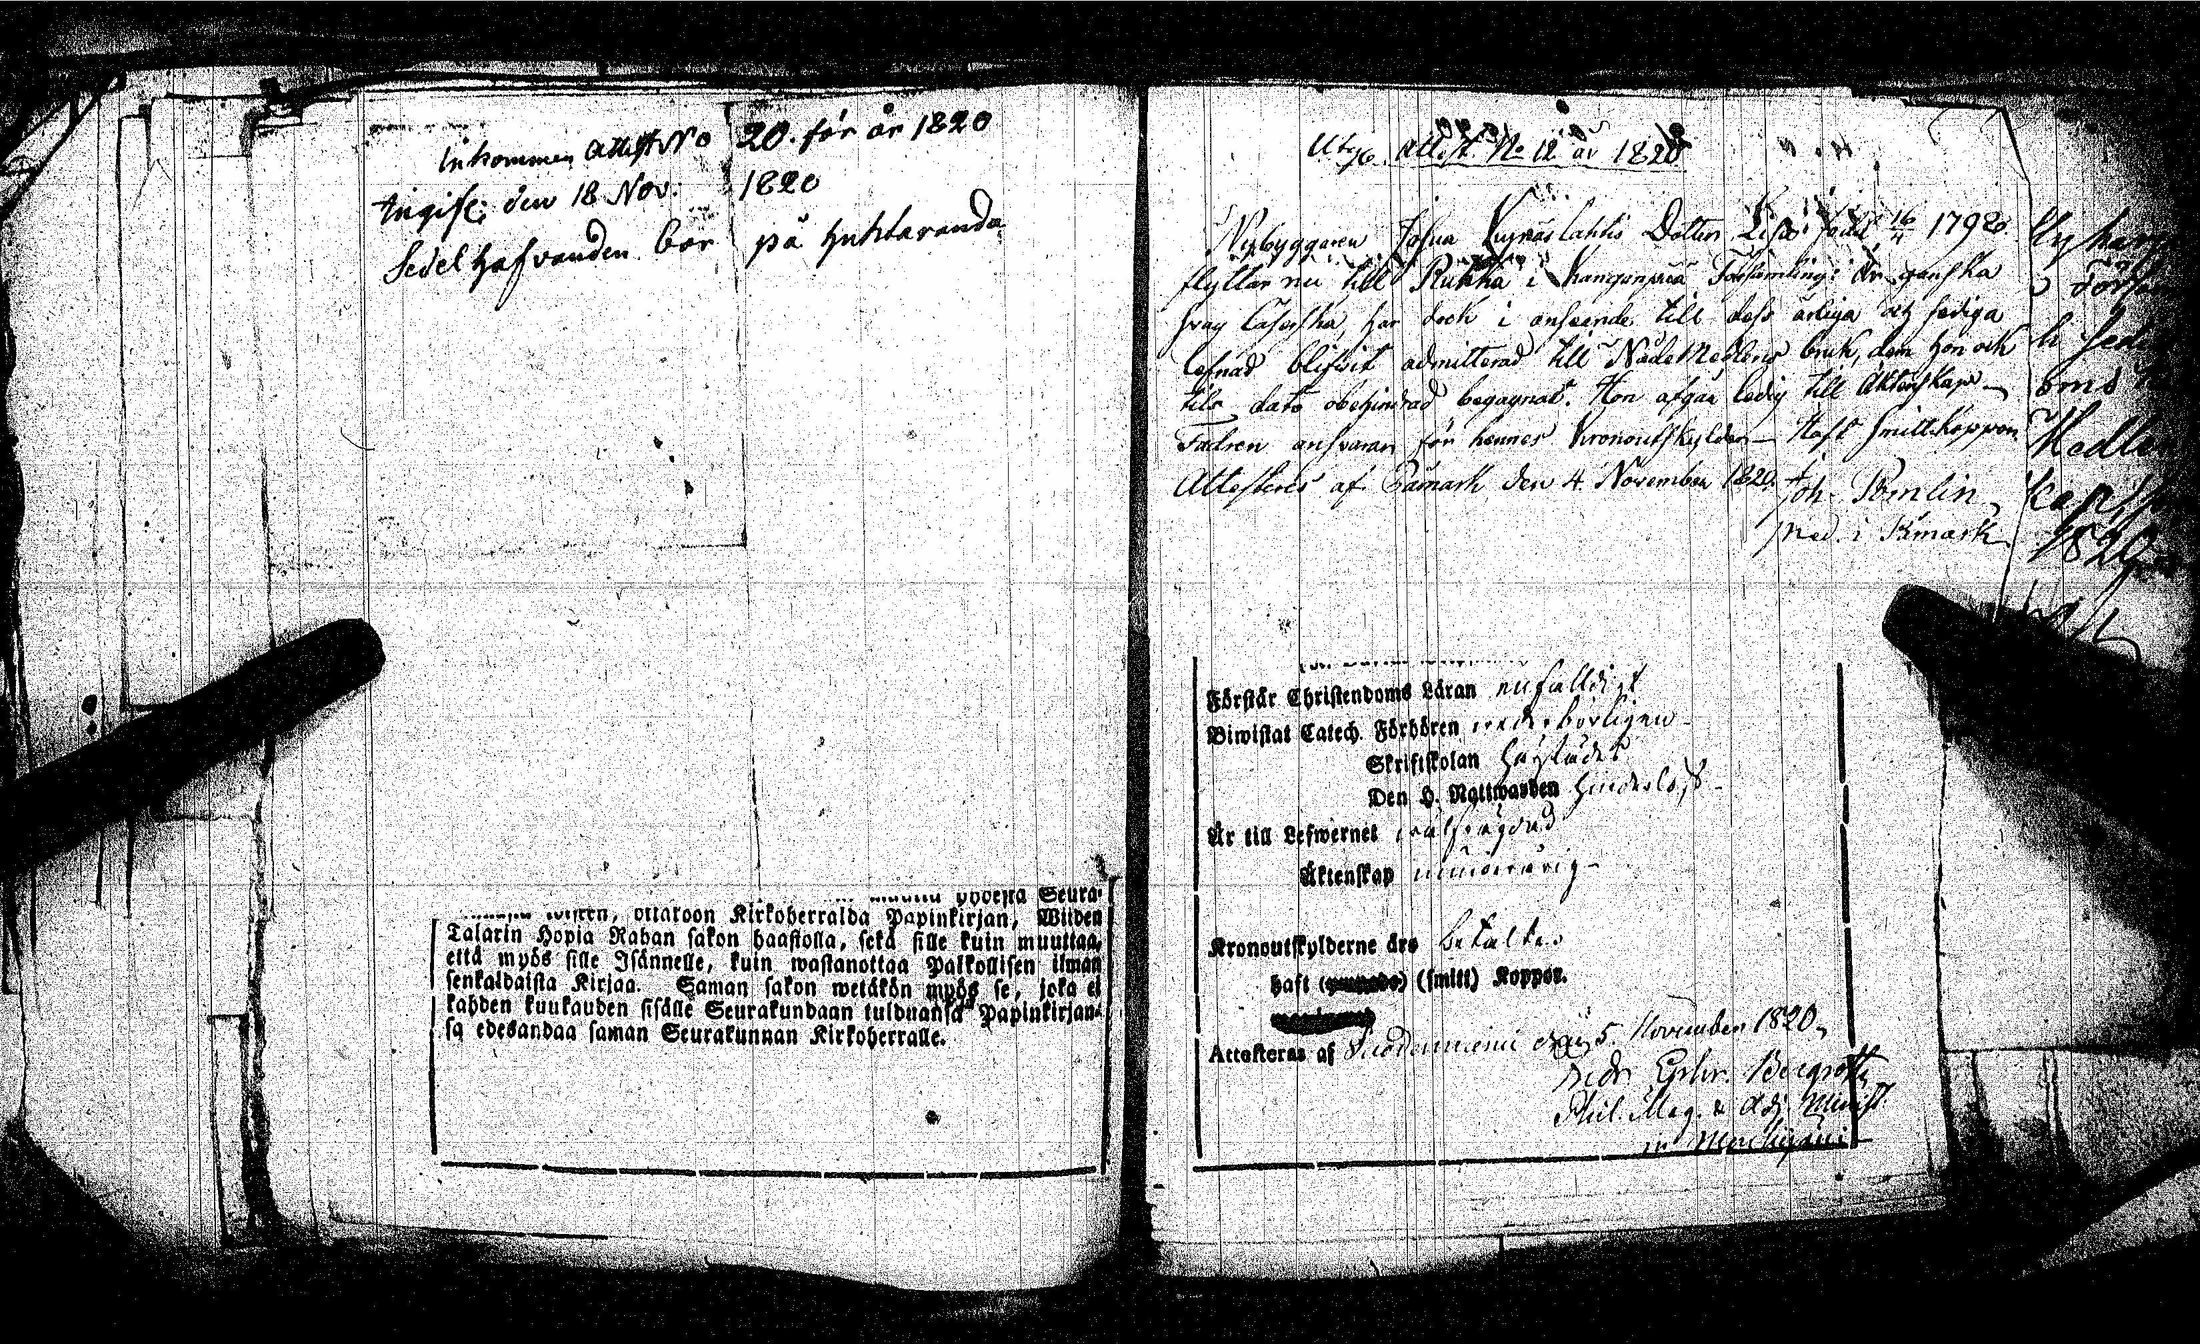 Inkommen Attest No 20. för år 1820
Ingift. den 18 Nov. 1820
Sedel hafvanden bor på Huhtaranda
Seura-
ottakoon Kirkoherralda Papinkirjan, Wiiden
Talarin Hopia Rahan sakon haastolla, sekä sille kuin muuttaa,
että myös sille Isännelle, kuin wastanottaa Palkollisen ilman
senkaldaista Kirjaa. Saman sakon wetäkön myös se, joka ei
kahden kuukauden sisälle Seurakundaan tulduansa Papinkirjan-
sa edesandaa saman Seurakunnan Kirkoherralle.
Utg. Attest. No 12 år 1820
Nybyggaren Josua Dotter Lisa född 16/4 1792
flyttar nu till Rukka i Kangunpää Församling: är ganska
svag läserska, har dock i anseende till dess ärliga och sediga
lefnad blifvit admitterad till NådeMedlens bruk, dem hon ock
tils dato obehindrad begagnat. Hon afgår ledig till Äktenskap
Fadren ansvarar för hennes Kronoutskylder Haft Smittkoppor
Attesteres af Påmark den 4 November 1820
Joh. Pomlin
Pred. i Påmark
1820
Förstår Christendoms Läran enfalldigt
Biwistat Catech. Förhören wederbörligen
Skriftskolan
Den H. Nattwarden hinderlöst
Är till Lefwernet wälfrägdad
Äktenskap minderårig
Kronoutskylderne äro betalte
haft (smitt) Koppor.
Attesteras af Suodenniemi den 5. November 1820
Phil. Mag. & Adj. Minist.